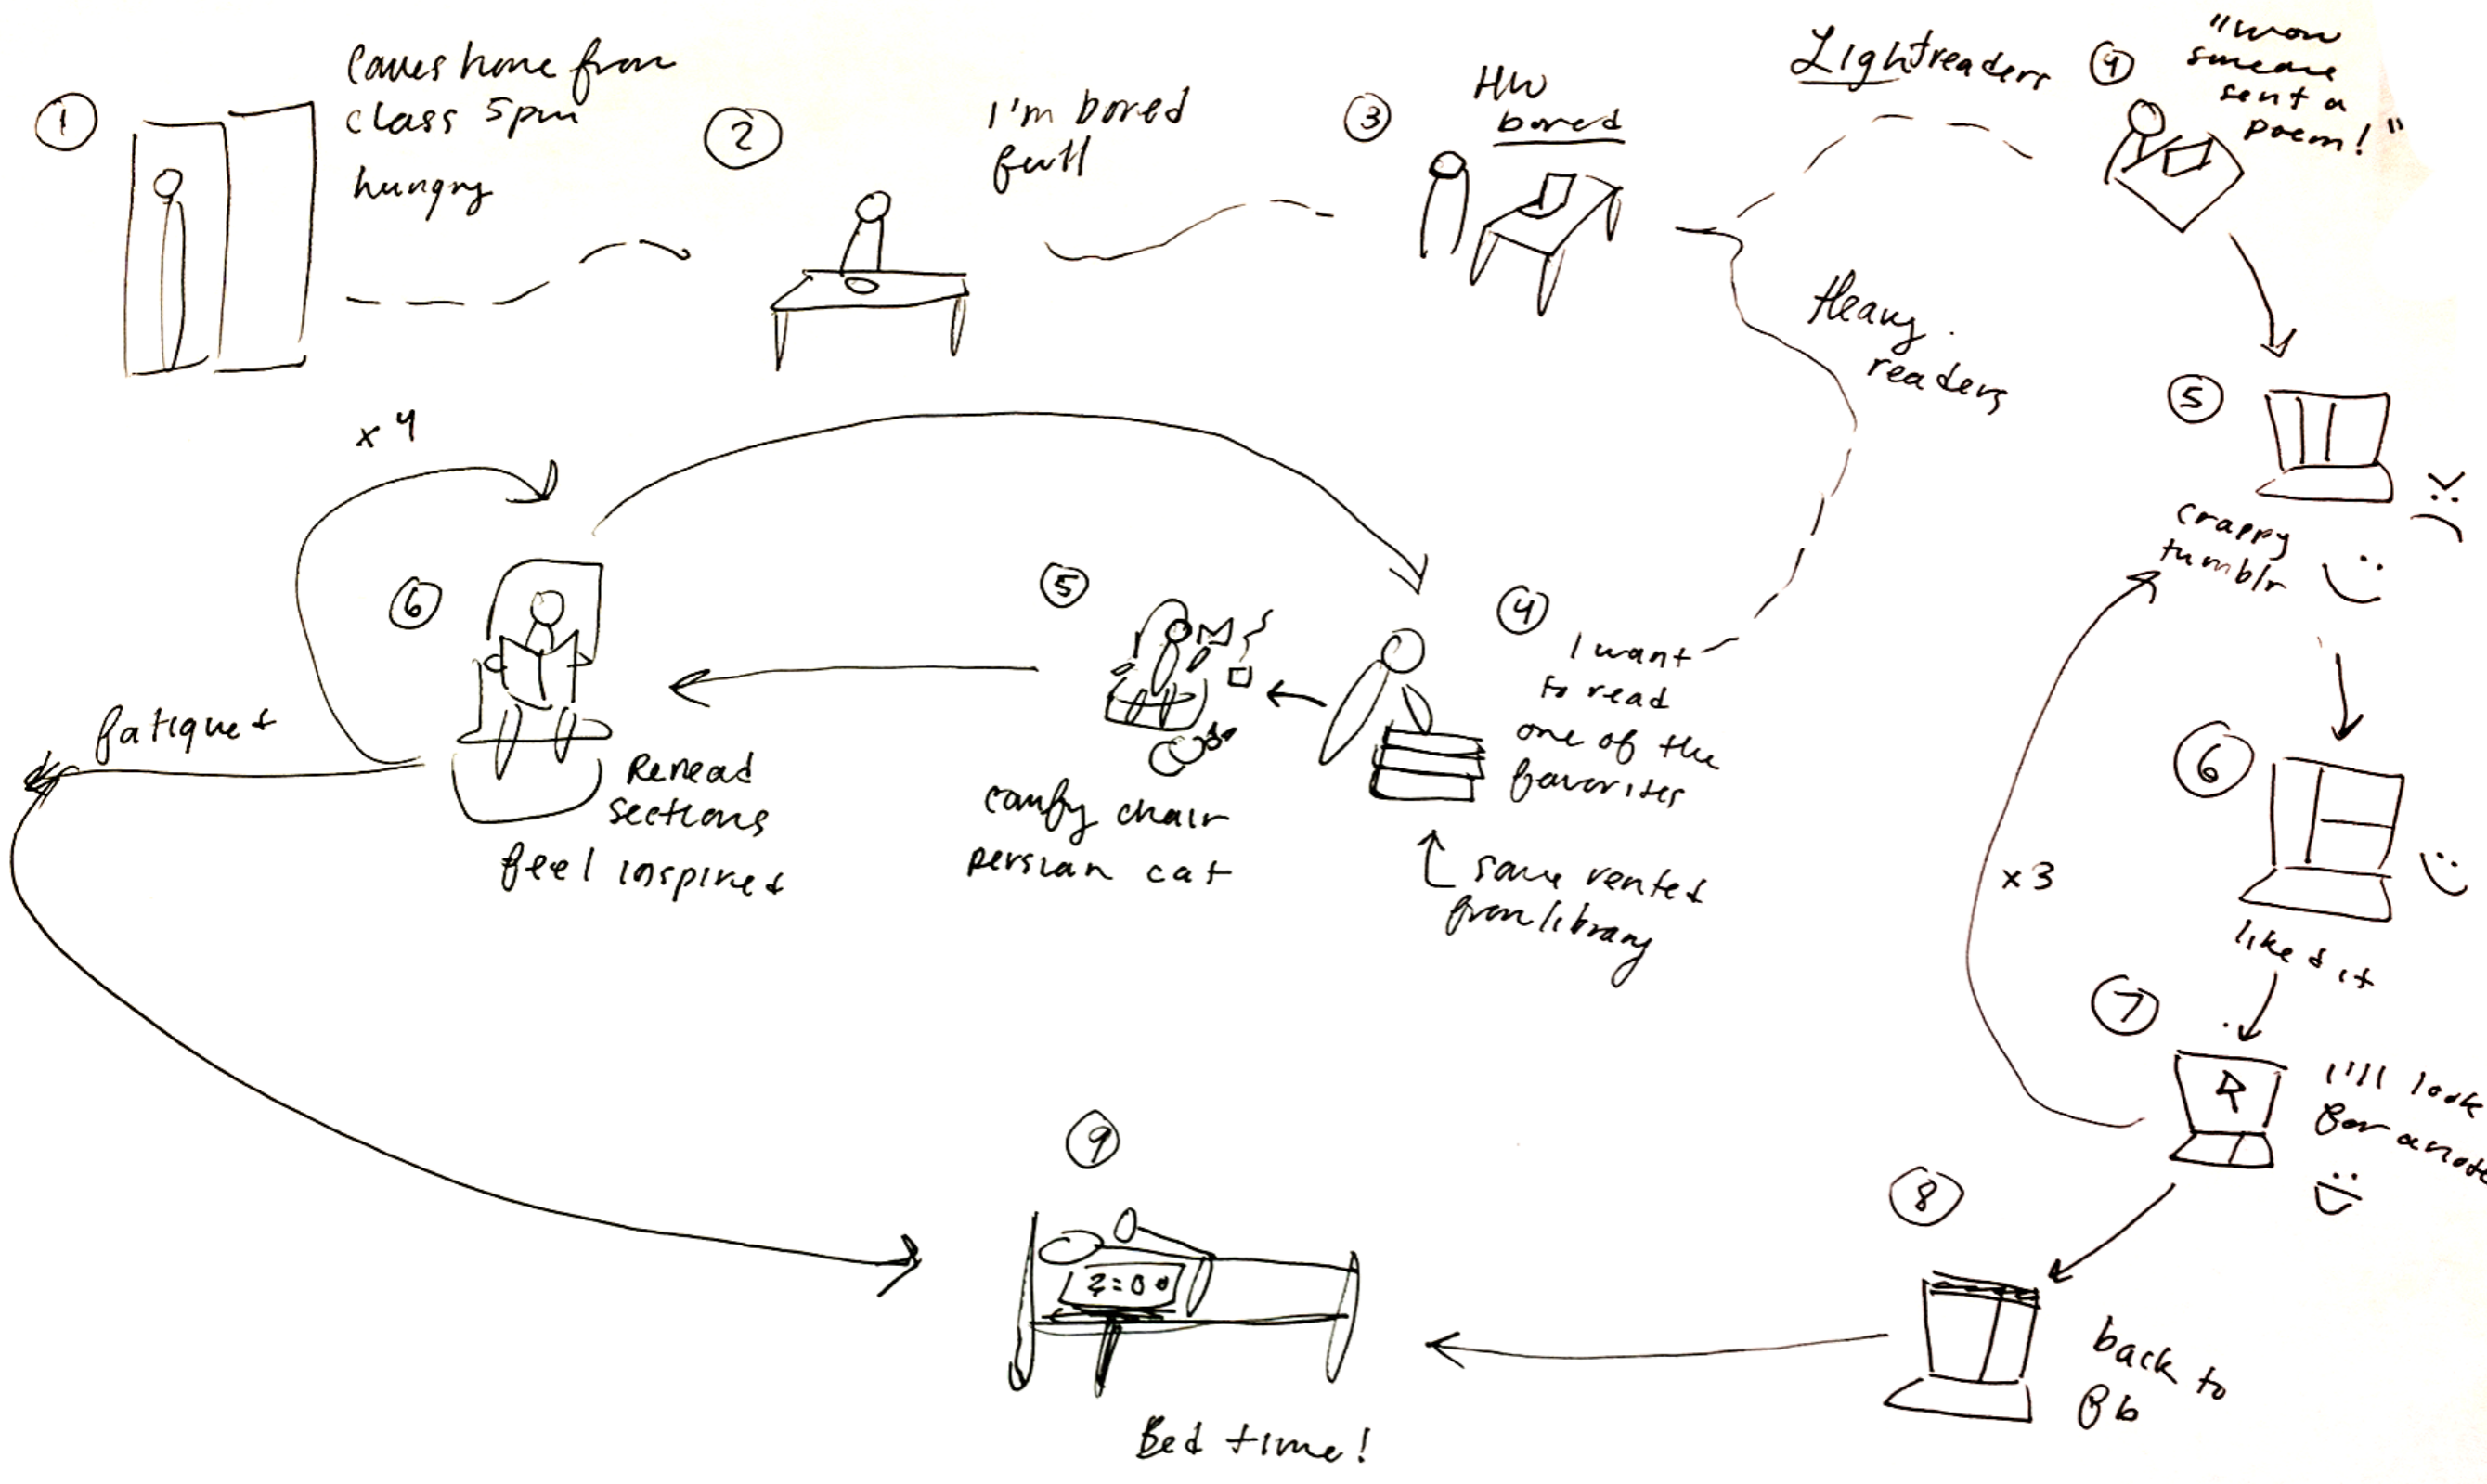 ①
Comes home from
class 5pm
hungry
②
I'm bored
full
③
HW
bored
Lightreaders
④
"wow
someone
sent a
poem!"
Heavy
readers
⑤
crappy
tumblr
⑥
liked it
⑦
I'll look
for anothe
x3
⑧
back to
fb
④
I want
to read
one of the
favorites
some rented
from library
⑤
comfy chair
persian cat
⑥
Reread
sections
feel inspired
x4
fatigued
⑨
2:00
Bed time!